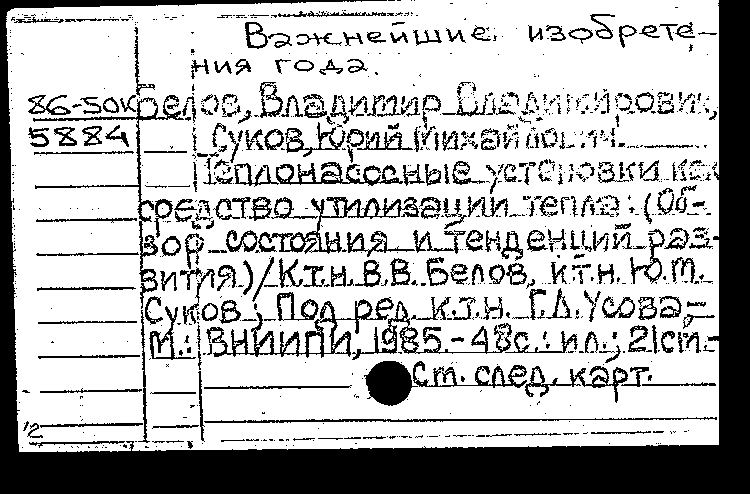 Важнейшие изобрете-
ния года.
86-50к Белов, Владимир Владимирович,
5884 Суков, Юрий Михайлович.
Теплонасосные установки как
средство утилизации тепла: (Об-
зор состояния и тенденций раз-
вития) / К.т.н. В.В. Белов, к.т.н. Ю.М.
Суков; Под ред. к.т.н. Г.Д. Усова,-
М.: ВНИИПИ, 1985.-48с.: ил.; 21см.-
См. след. карт.
12